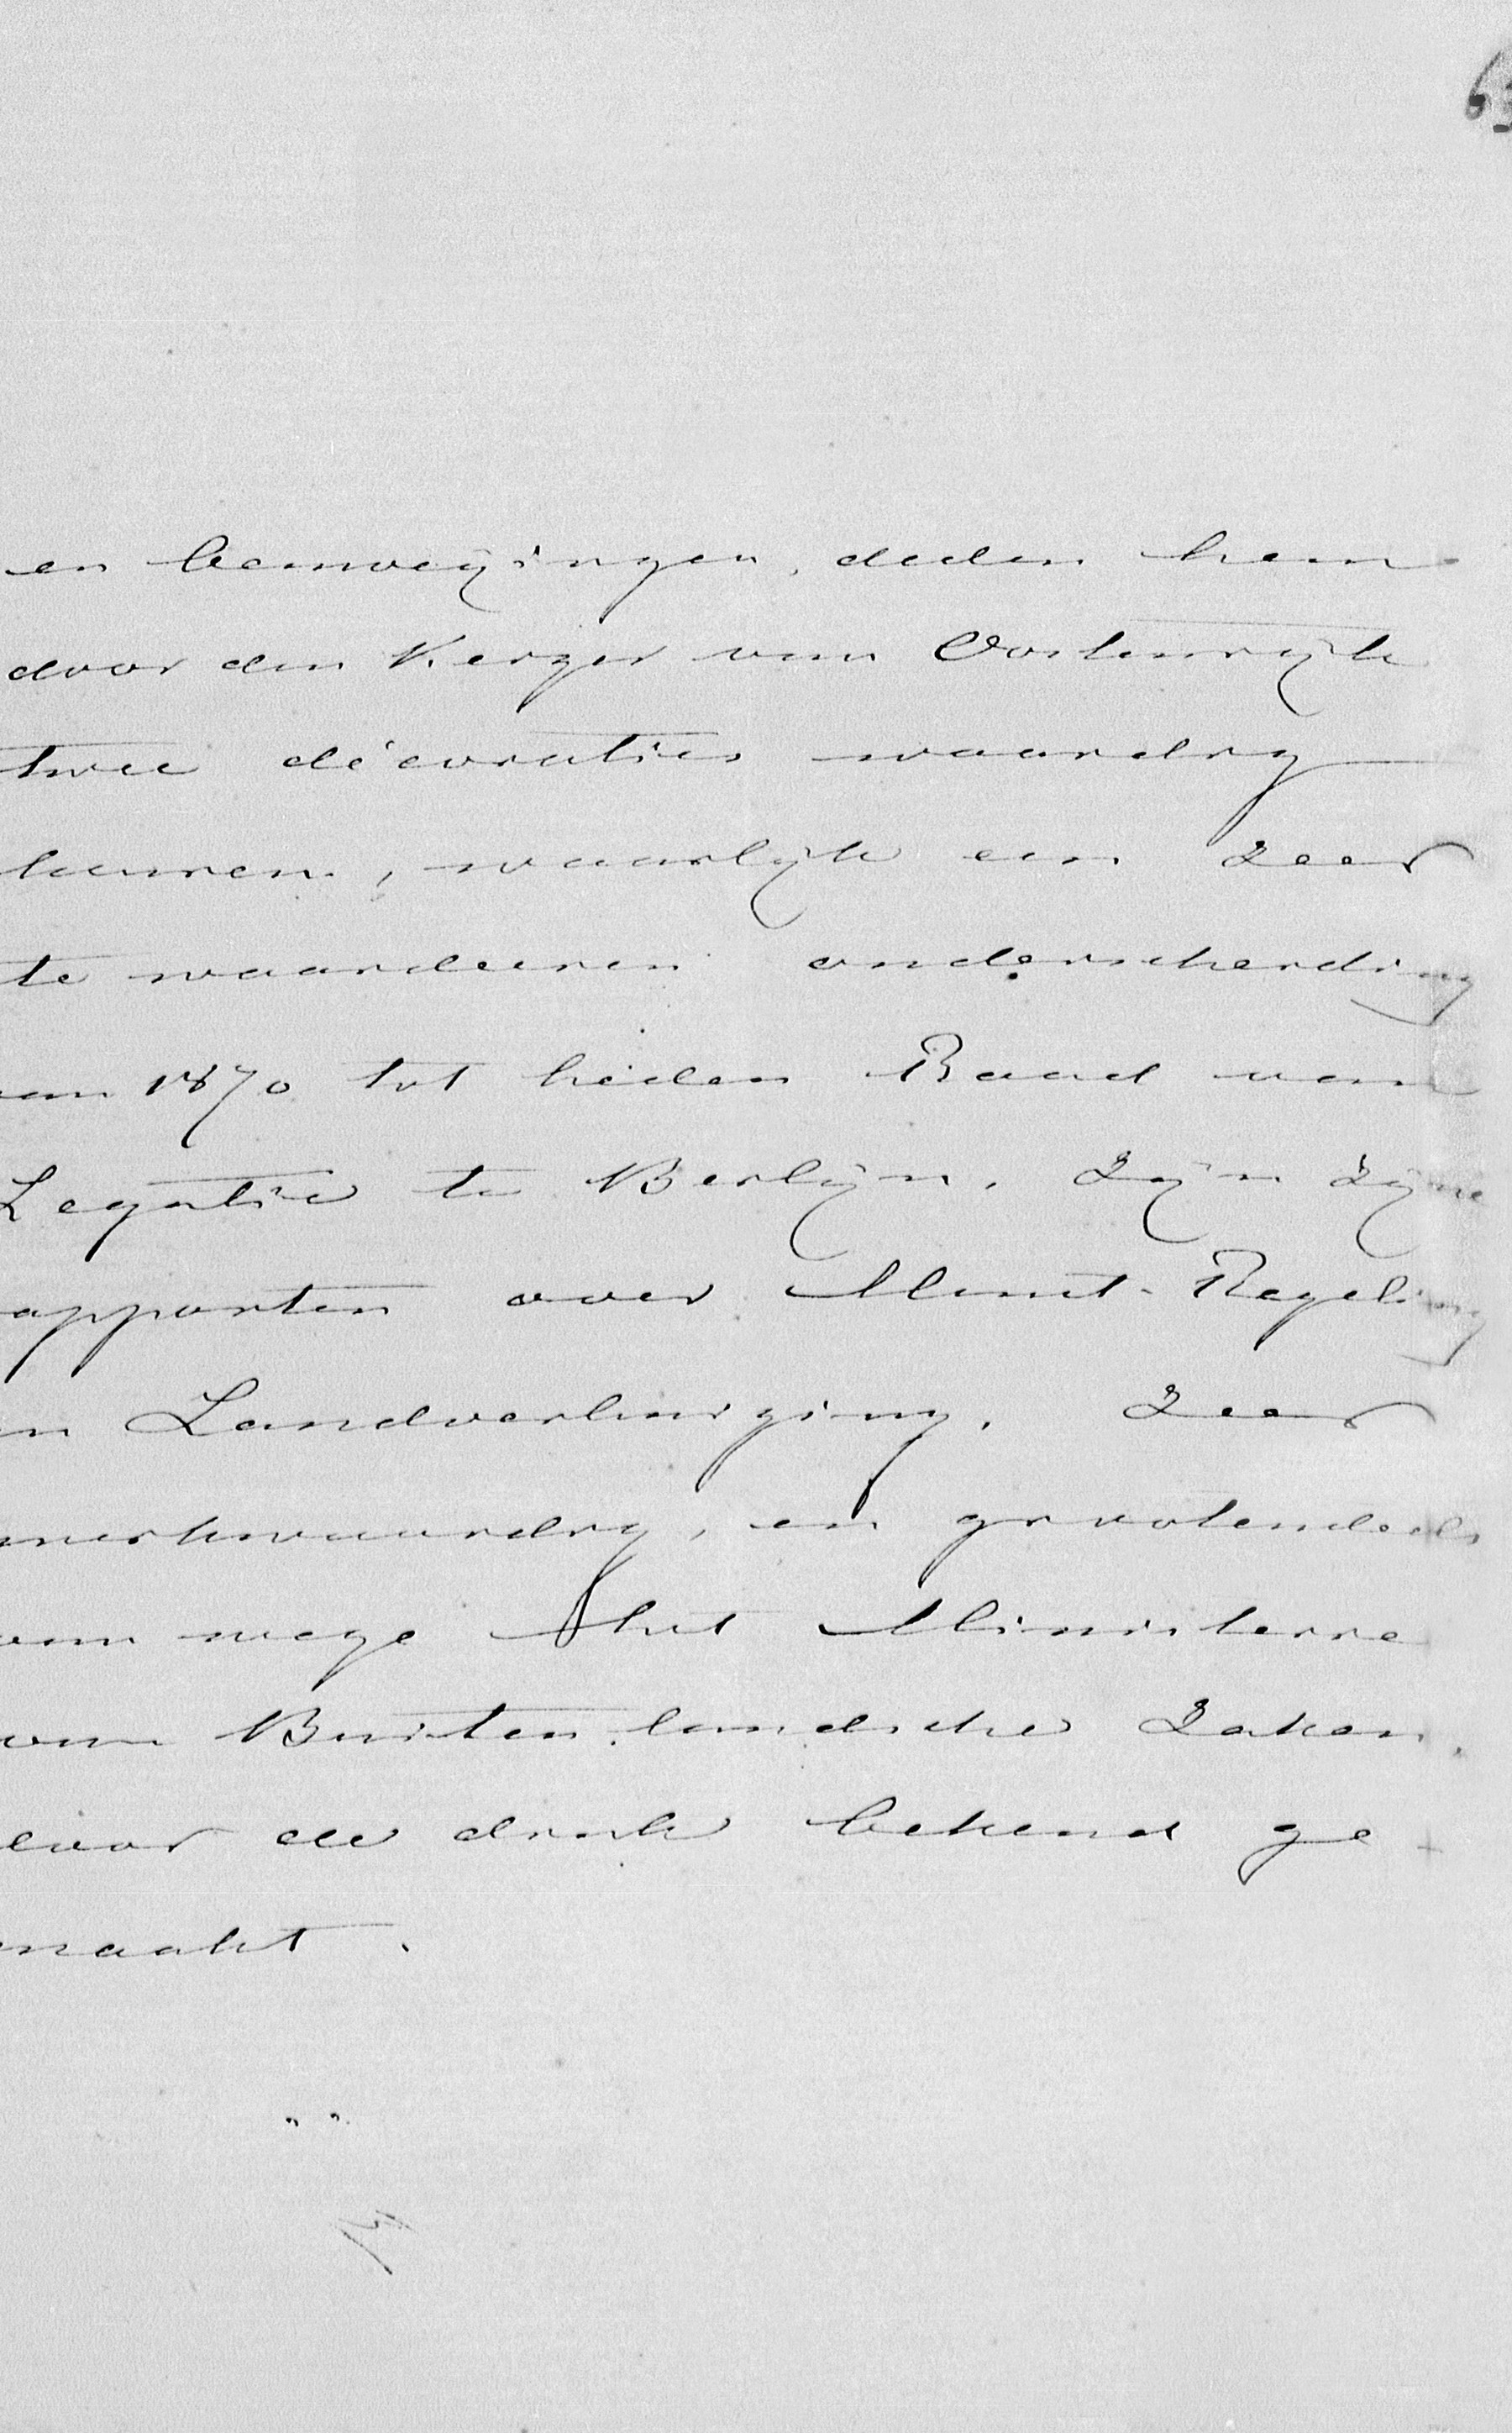 63
en bemoeijingen, deden hem
door den Keizer van Oostenrijk
twee décoratien waardig
keuren, waarlijk een zeer
te waardeeren onderscheiding
van 1870 tot heden Raad van
Legatie te Berlijn. Zijn zijne
rapporten over Munt-Regeling
en Landverhuizing, zeer
merkwaardig, en grootendeels
van wege het Ministerie
van Buitenlandsche Zaken,
door de druk bekend ge-
maakt.